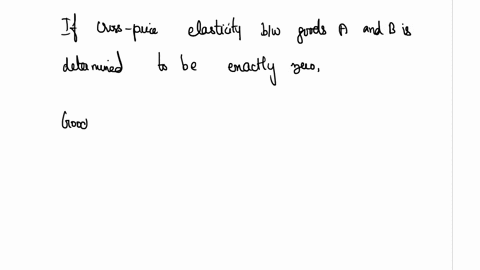 If cross-price elasticity b/w goods A and B is
determined to be exactly zero.
Good